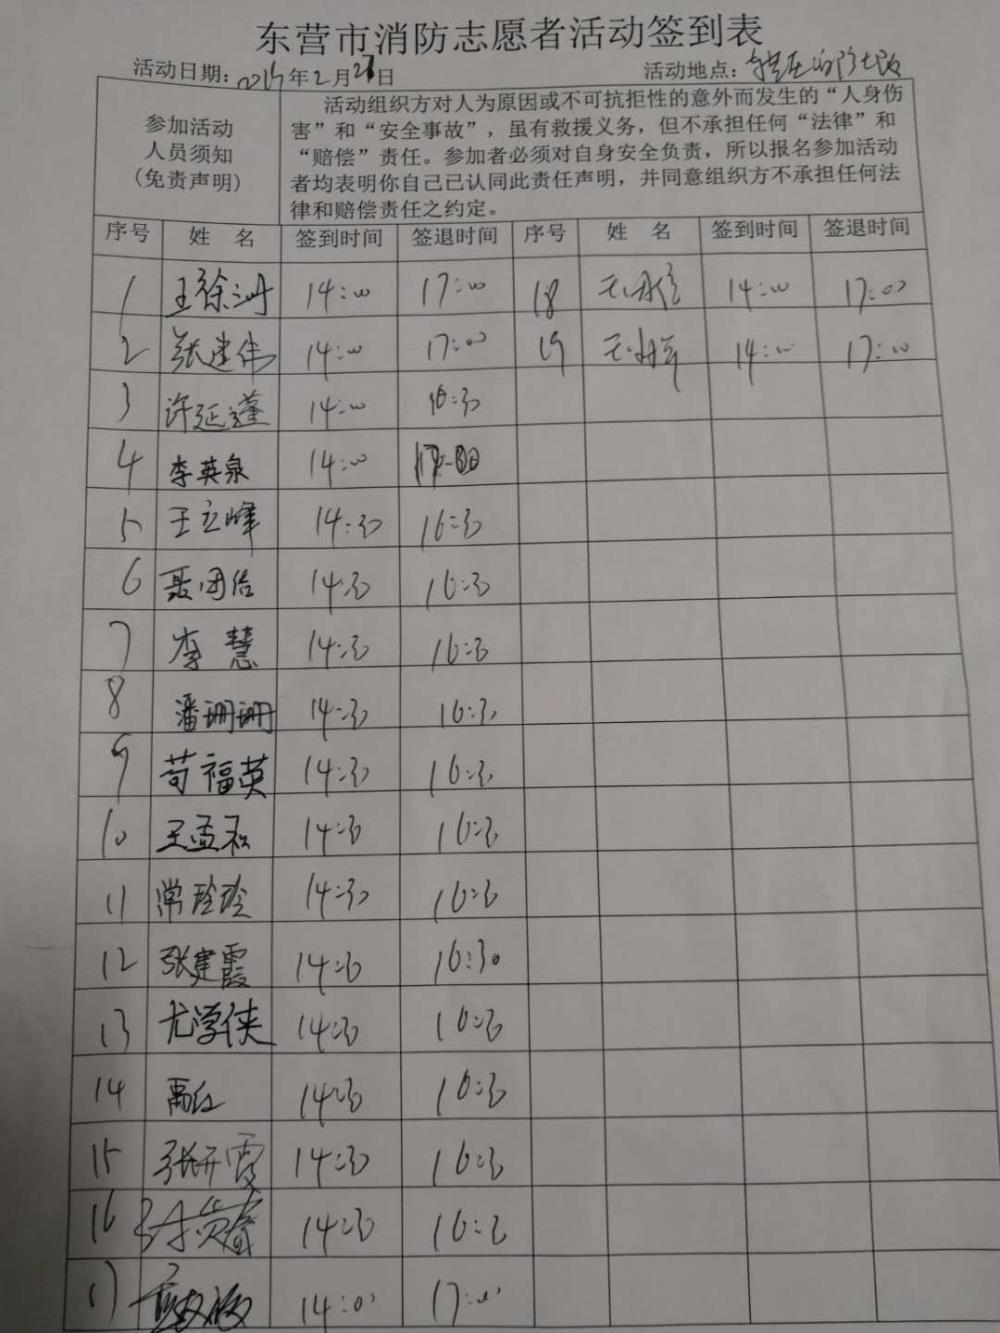 东营市消防志愿者活动签到表
活动日期：2019年2月27日 活动地点：
参加活动
人员须知
（免责声明）
活动组织方对人为原因或不可抗拒性的意外而发生的“人身伤
害”和“安全事故”，虽有救援义务，但不承担任何“法律”和
“赔偿”责任。参加者必须对自身安全负责，所以报名参加活动
者均表明你自己已认同此责任声明，并同意组织方不承担任何法
律和赔偿责任之约定。
序号 姓 名 签到时间 签退时间 序号 姓 名 签到时间 签退时间
1 王徐州 14:00 17:00 18 14:00 17:00
2 张建伟 14:00 17:00 19 14:00 17:00
3 许延蓬 14:00 16:30
4 李英泉 14:00 17:00
5 王立峰 14:30 16:30
6 聂团结 14:30 16:30
7 李慧 14:30 16:30
8 潘珊珊 14:30 16:30
9 苟福英 14:30 16:30
10 王孟和 14:30 16:30
11 常玲玲 14:30 16:30
12 张建霞 14:30 16:30
13 尤学侠 14:30 16:30
14 禹红 14:30 16:30
15 张开霞 14:30 16:30
16 14:30 16:30
17 14:00 17:00